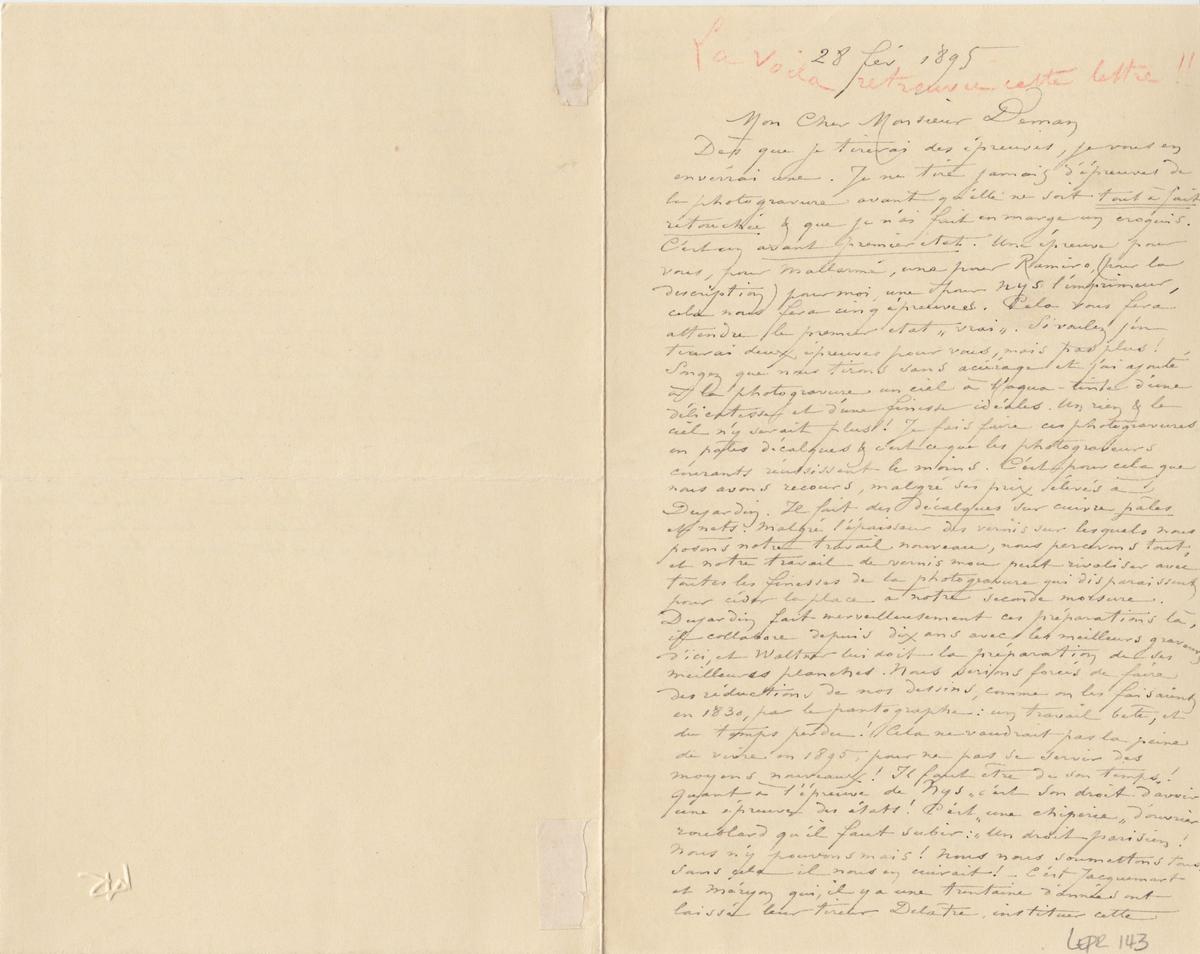 28 fév 1895
La voila retrouvée cette lettre !!
Mon Cher Monsieur Deman
Dès que je tirerai des épreuves, je vous en
enverrai une. Je ne tire jamais d'épreuves de
la photogravure avant qu'elle ne soit tout à fait
retouchée & que je n'ai fait en marge un croquis.
C'est un avant premier état. Une épreuve pour
vous, pour Mallarmé, une pour Ramiro, (pour la
description) pour moi, une pour Nys l'imprimeur,
cela nous fera cinq épreuves. Cela vous fera
attendre le premier état „vrai„. Si voulez j'en
tirerai deux épreuves pour vous, mais pas plus!
Songez que nous tirons sans aciérage et j'ai ajouté
à la photogravure un ciel à l'aqua-tinte d'une
délicatesse et d'une finesse idéales. Un rien & le
ciel n'y serait plus! Je fais faire ces photogravures
en pâles décalques & c'est ce que les photograveurs
courants réussissent le moins. C'est pour cela que
nous avons recours, malgré ses prix élevés à
Dujardin. Il fait des décalques sur cuivre pâles
et nets. Malgré l'épaisseur des vernis sur lesquels nous
posons notre travail nouveau, nous percevons tout,
et notre travail de vernis mou peut rivaliser avec
toutes les finesses de la photogravure qui disparaissent
pour céder la place à notre seconde morsure.
Dujardin fait merveilleusement ces préparations là,
il collabore depuis dix ans avec les meilleurs graveurs
d'ici, et Waltner lui doit la préparation de ses
meilleures planches. Nous serions forcés de faire
des réductions de nos dessins, comme on les faisaient
en 1830, par le pantographe: un travail bête, et
du temps perdu! Cela ne vaudrait pas la peine
de vivre en 1895, pour ne pas se servir des
moyens nouveaux! Il faut être de son temps!
Quant à l'épreuve de Nys, c'est son droit d'avoir
une épreuve des états! C'est „une chiperie„ d'ouvrier
roublard qu'il faut subir: „Un droit parisien!
Nous n'y pouvons mais! Nous nous soumettons tous
sans cela il nous en cuirait! C'est Jacquemart
et Méryon qui, il y a une trentaine d'années ont
laissé leur tireur Delâtre, instituer cette
LEPR 143